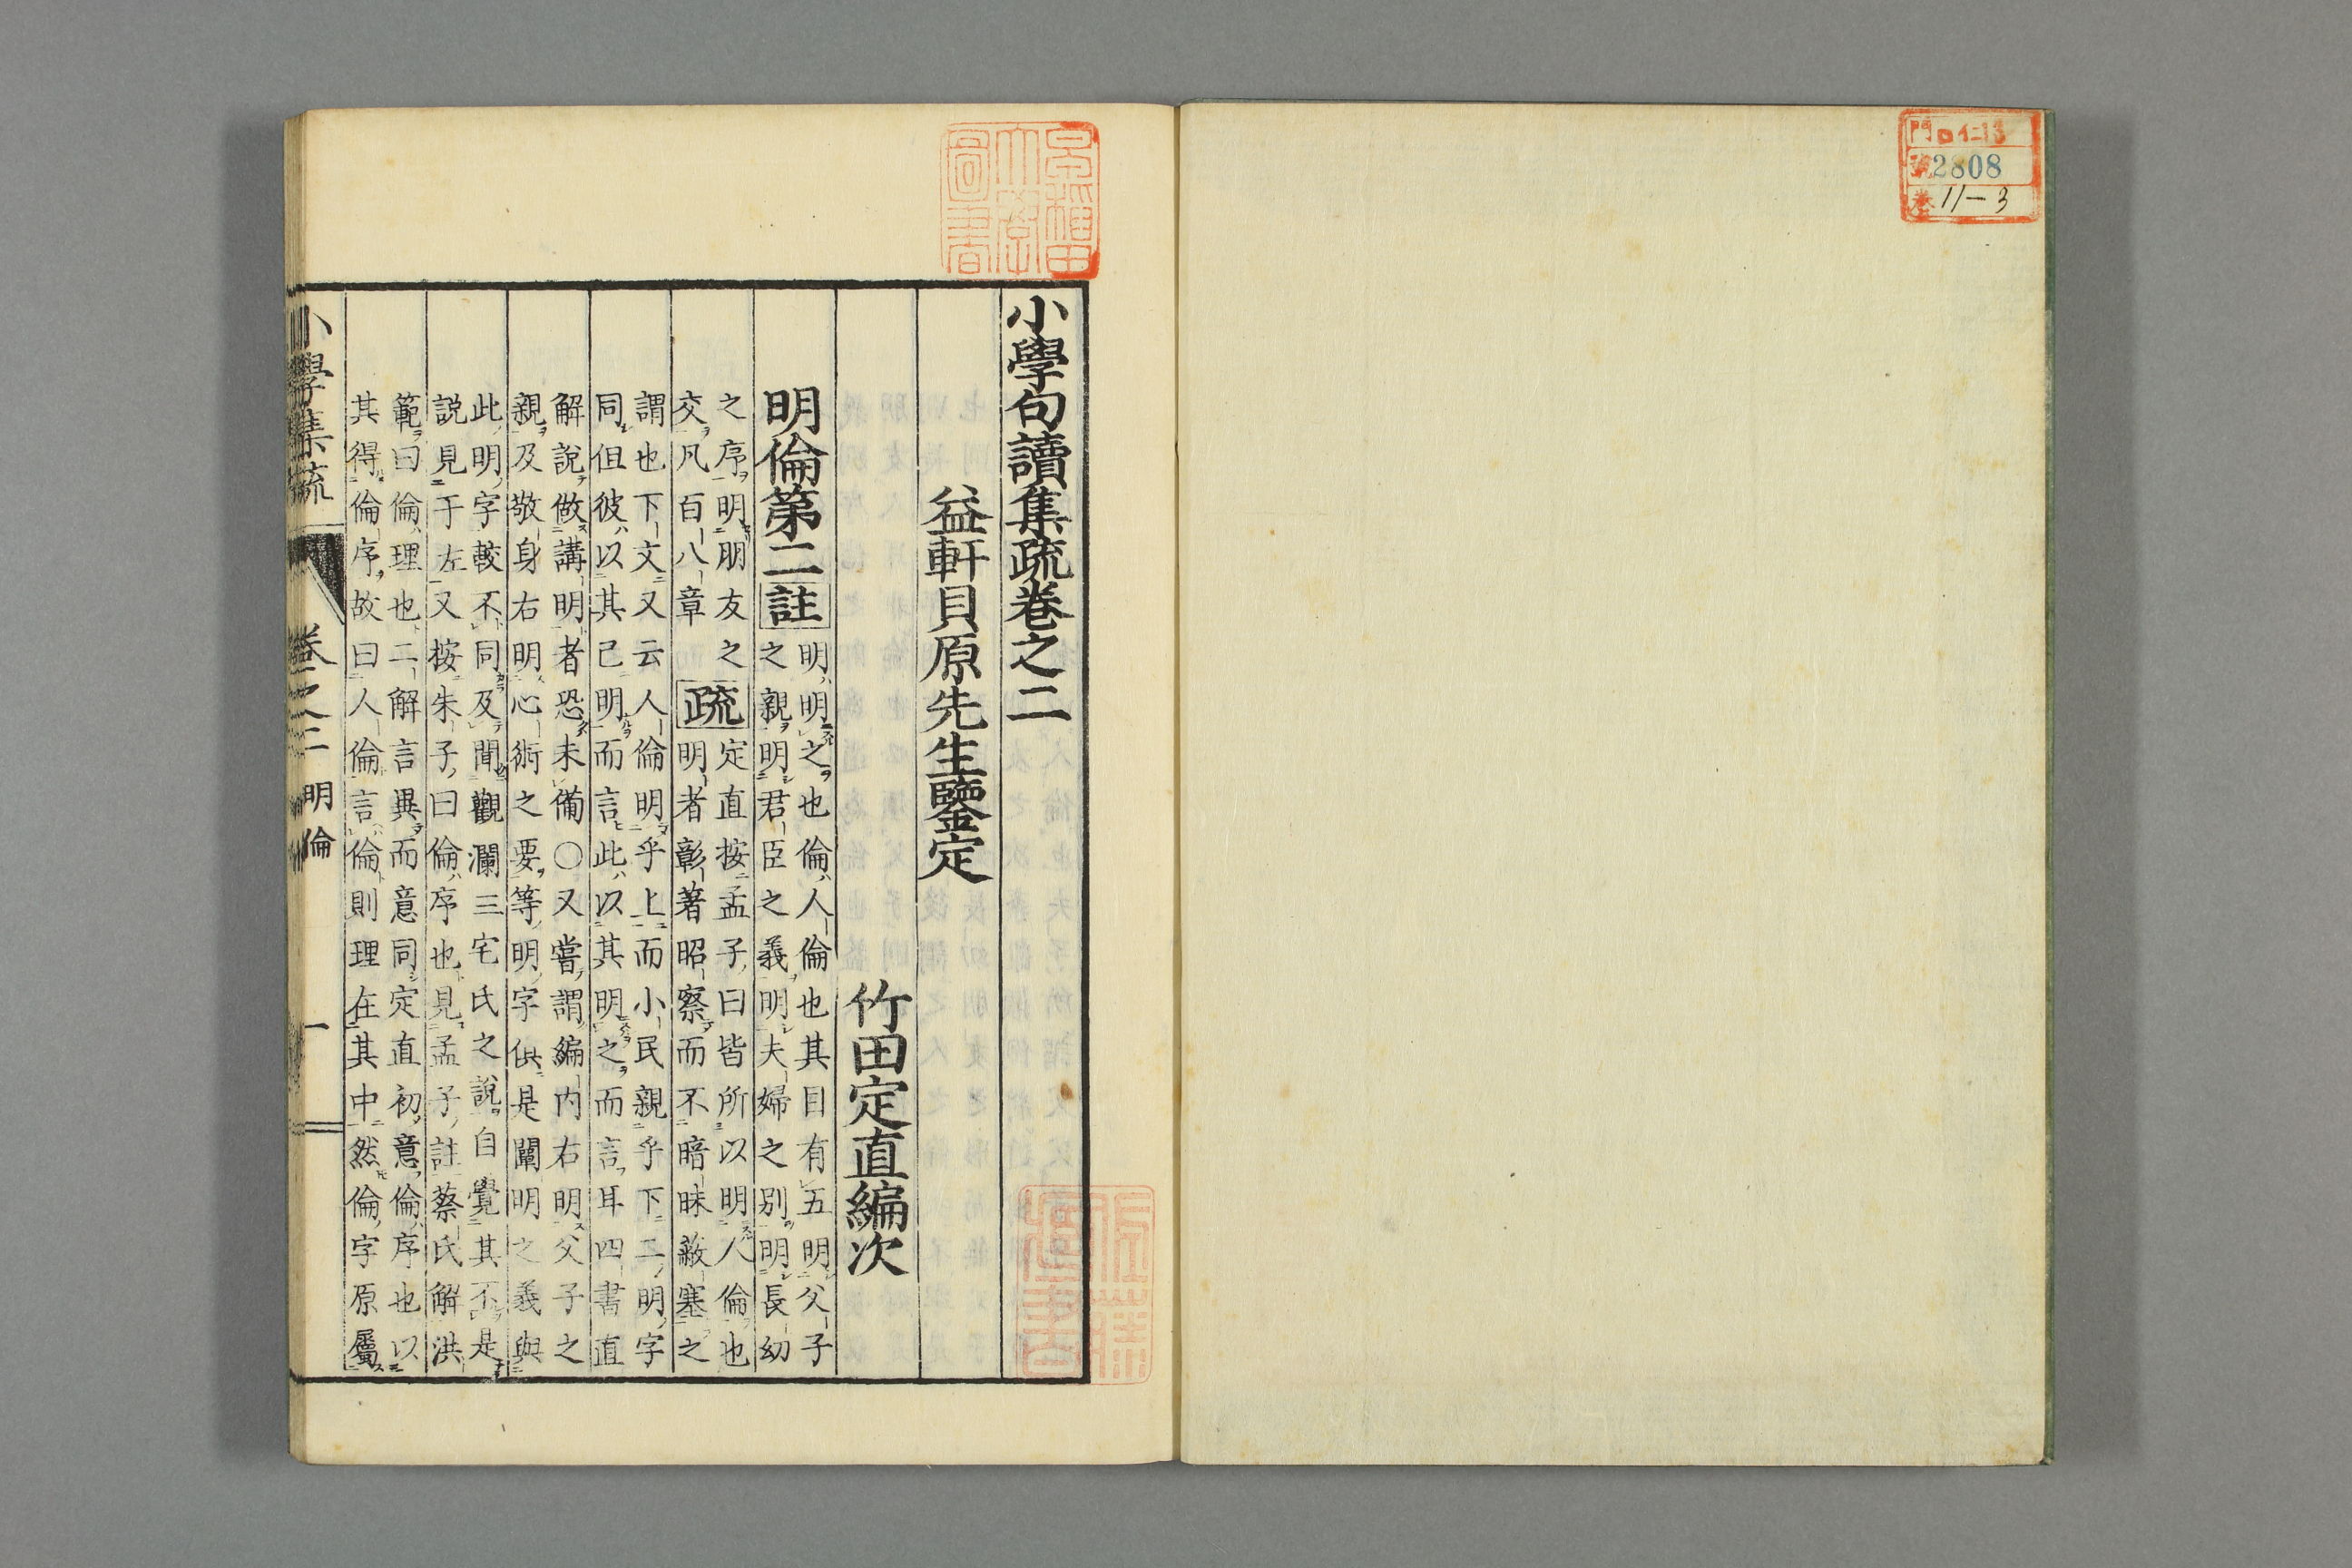 門 口仁13
號 2808
卷 11-3
早稲田
大學
圖書
小學句讀集疏卷之二
益軒貝原先生鑒定
竹田定直編次
明倫第二 註
明明之也倫人倫也其目有五明父子
之親明君臣之義明夫婦之別明長幼
之序明朋友之
交凡百八章
疏
定直按孟子曰皆所以明人倫也
明者彰著昭察而不暗昧蔽塞之
謂也下文又云人倫明乎上而小民親乎下二明字
同但彼以其已明而言此以其明之而言耳四書直
解說做講明者恐未備○又嘗謂編內右明父子之
親及敬身右明心術之要等明字供是闡明之義與
此明字較不同及閱觀瀾三宅氏之說自覺其不是
說見于左又按朱子曰倫序也見孟子註蔡氏解洪
範曰倫理也二解言異而意同定直初意倫序也以
其得倫序故曰人倫言倫則理在其中然倫字原屬
小學集疏 卷之二 明倫 一